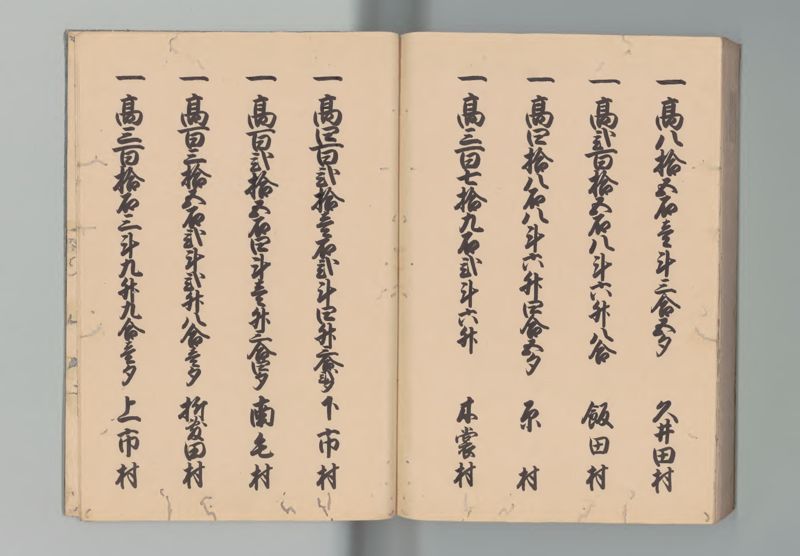 一高八拾五石壱斗三合五夕 久井田村
一高弐百拾五石八斗六升八合 飯田村
一高四拾八石八斗六升四合五夕 原村
一高三百七拾九石弐斗六升 本裳村
一高四百弐拾壱石弐斗四升六合弐夕 下市村
一高百弐拾五石四斗壱升六合四夕 南毛村
一高百三拾五石弐斗弐升八合壱夕 新発田村
一高三百拾石三斗九升九合壱夕 上市村